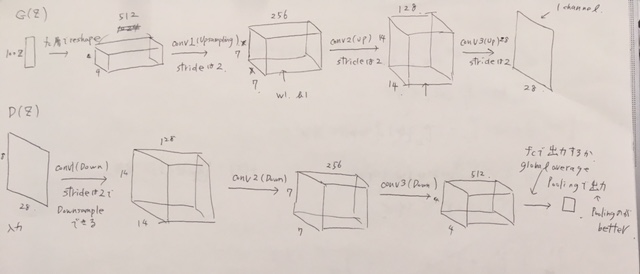 G(Z)
100Z
reshape
512
4
conv1(Upsampling)
strideは2
256
7
7
w1 b1
conv2(up)
strideは2
128
14
14
conv3(up)
strideは2
28
28
1 channel
D(Z)
28
入力
conv1(Down)
strideは2で
Downsample
できる
128
14
14
conv2(Down)
256
7
7
conv3(Down)
512
4
4
fcで出力するか
global average
Poolingで出力
Poolingの方が
better